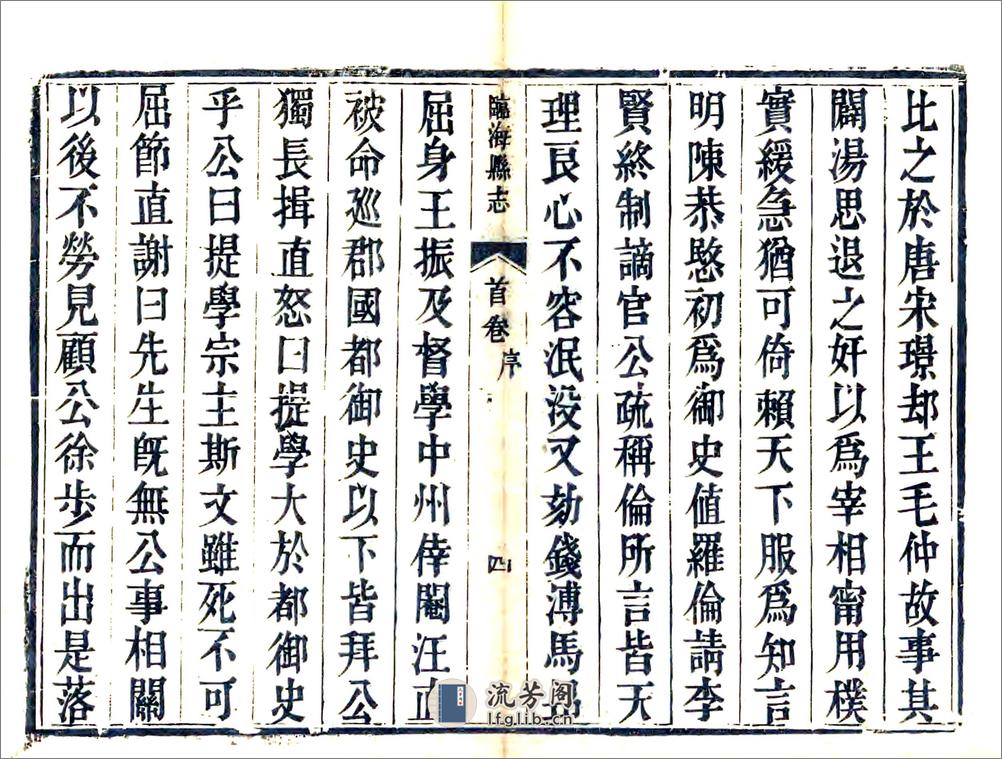 比之於唐宋璟却王毛仲故事其
闢湯思退之奸以爲宰相甯用樸
實緩急猶可倚賴天下服爲知言
明陳恭愍初爲御史值羅倫請李
賢終制謫官公疏稱倫所言皆天
理良心不容泯没又劾錢溥馬昂
臨海縣志
首卷
序
四
屈身王振及督學中州倖閹汪直
被命廵郡國都御史以下皆拜公
獨長揖直怒曰提學大於都御史
乎公曰提學宗主斯文雖死不可
屈節直謝曰先生旣無公事相關
以後不勞見顧公徐步而出是落
流芳阁
lfglib.cn